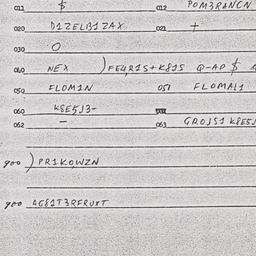 011 $ 012 POM3RANCN
020 D1ZELB1ZAX 021 +
030 O
040 NEX )FE4R1S+K81S Q-AP $
050 FLOM1N 051 FLOMA11
060 K8E5J3-
062 — 063 GROJS1 K8E5J
900 )PR1KOWZN
900 AG81T3RFRUXT